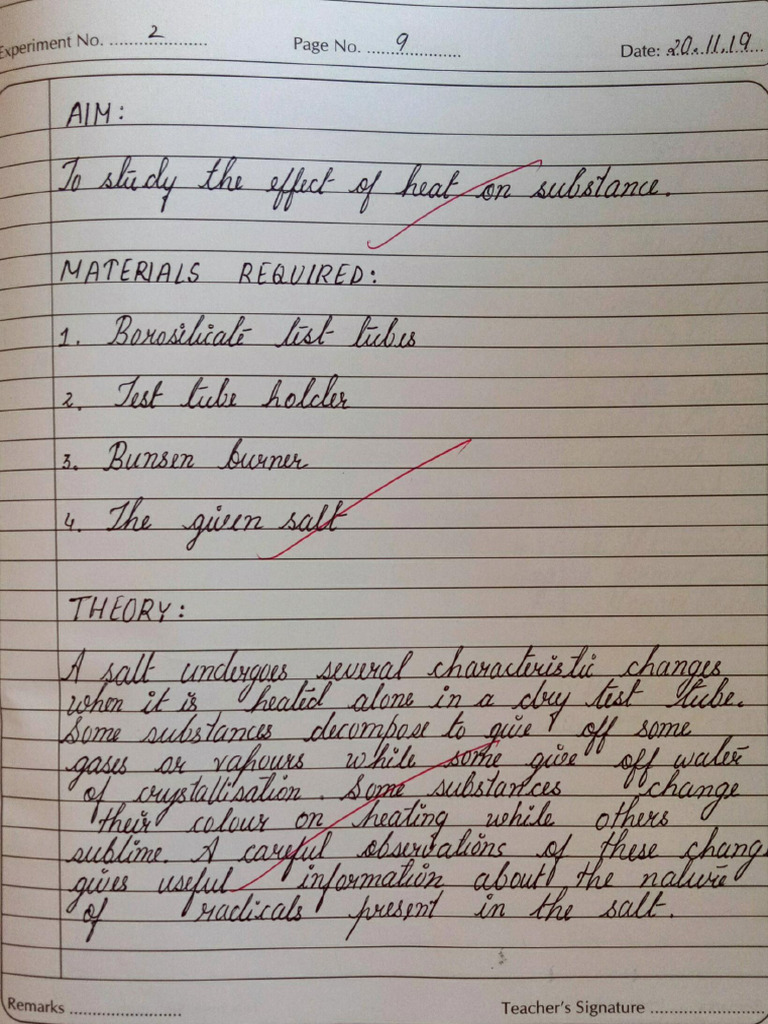 Experiment No. 2 Page No. 9 Date: 20.11.19
AIM:
To study the effect of heat on substance.
MATERIALS REQUIRED:
1. Borosilicate test tubes
2. Test tube holder
3. Bunsen burner
4. The given salt
THEORY:
A salt undergoes several characteristic changes
when it is heated alone in a dry test tube.
Some substances decompose to give off some
gases or vapours while some give off water
of crystallisation. Some substances change
their colour on heating while others
sublime. A careful observations of these chang
gives useful information about the nature
of radicals present in the salt.
Remarks Teacher's Signature